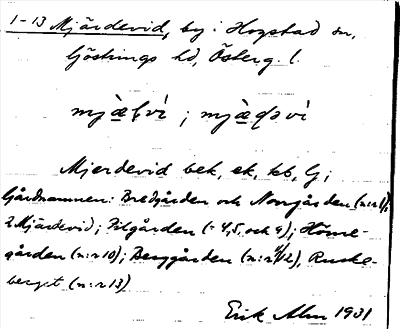 1-13 Mjärdevid, by i Hogstad sn,
Göstrings hd, Österg. l.
mjæ̀ḷvi ; mjæ̀ḍəvi
Mjerdevid bek, ek, kb, G;
Gårdnamnen: Bredgården och Norrgården (n:r 1),
2 Mjärdevid; Pilgården (= 4, 5, och 9); Höme-
gården (n:r 10); Berggården (n:r 11/12), Ruske-
berget (n:r 13)
Erik Alm 1931